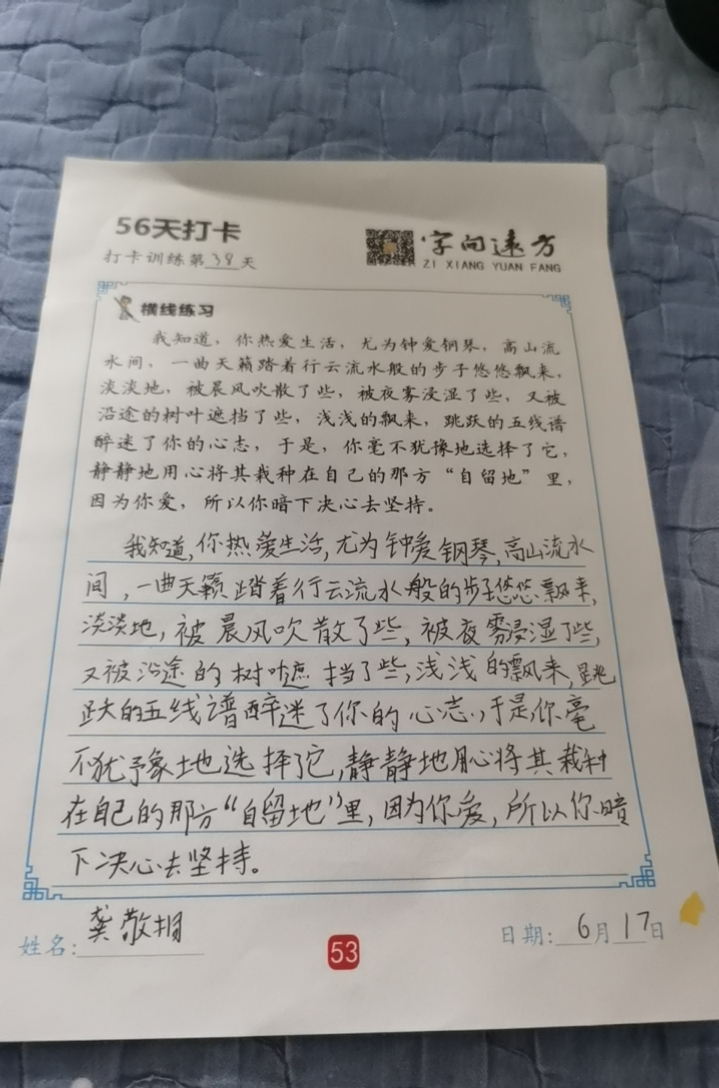 56天打卡
打卡训练第39天
字向远方
ZI XIANG YUAN FANG
横线练习
我知道，你热爱生活，尤为钟爱钢琴，高山流
水间，一曲天籁踏着行云流水般的步子悠悠飘来，
淡淡地，被晨风吹散了些，被夜雾浸湿了些，又被
沿途的树叶遮挡了些，浅浅的飘来，跳跃的五线谱
醉迷了你的心志，于是，你毫不犹豫地选择了它，
静静地用心将其栽种在自己的那方“自留地”里，
因为你爱，所以你暗下决心去坚持。
我知道，你热爱生活，尤为钟爱钢琴，高山流水
间，一曲天籁踏着行云流水般的步子悠悠飘来，
淡淡地，被晨风吹散了些，被夜雾浸湿了些，
又被沿途的树叶遮挡了些，浅浅的飘来，跳
跃的五线谱醉迷了你的心志，于是，你毫
不犹豫地选择了它，静静地用心将其栽种
在自己的那方“自留地”里，因为你爱，所以你暗
下决心去坚持。
姓名：龚敬
53
日期：6月17日